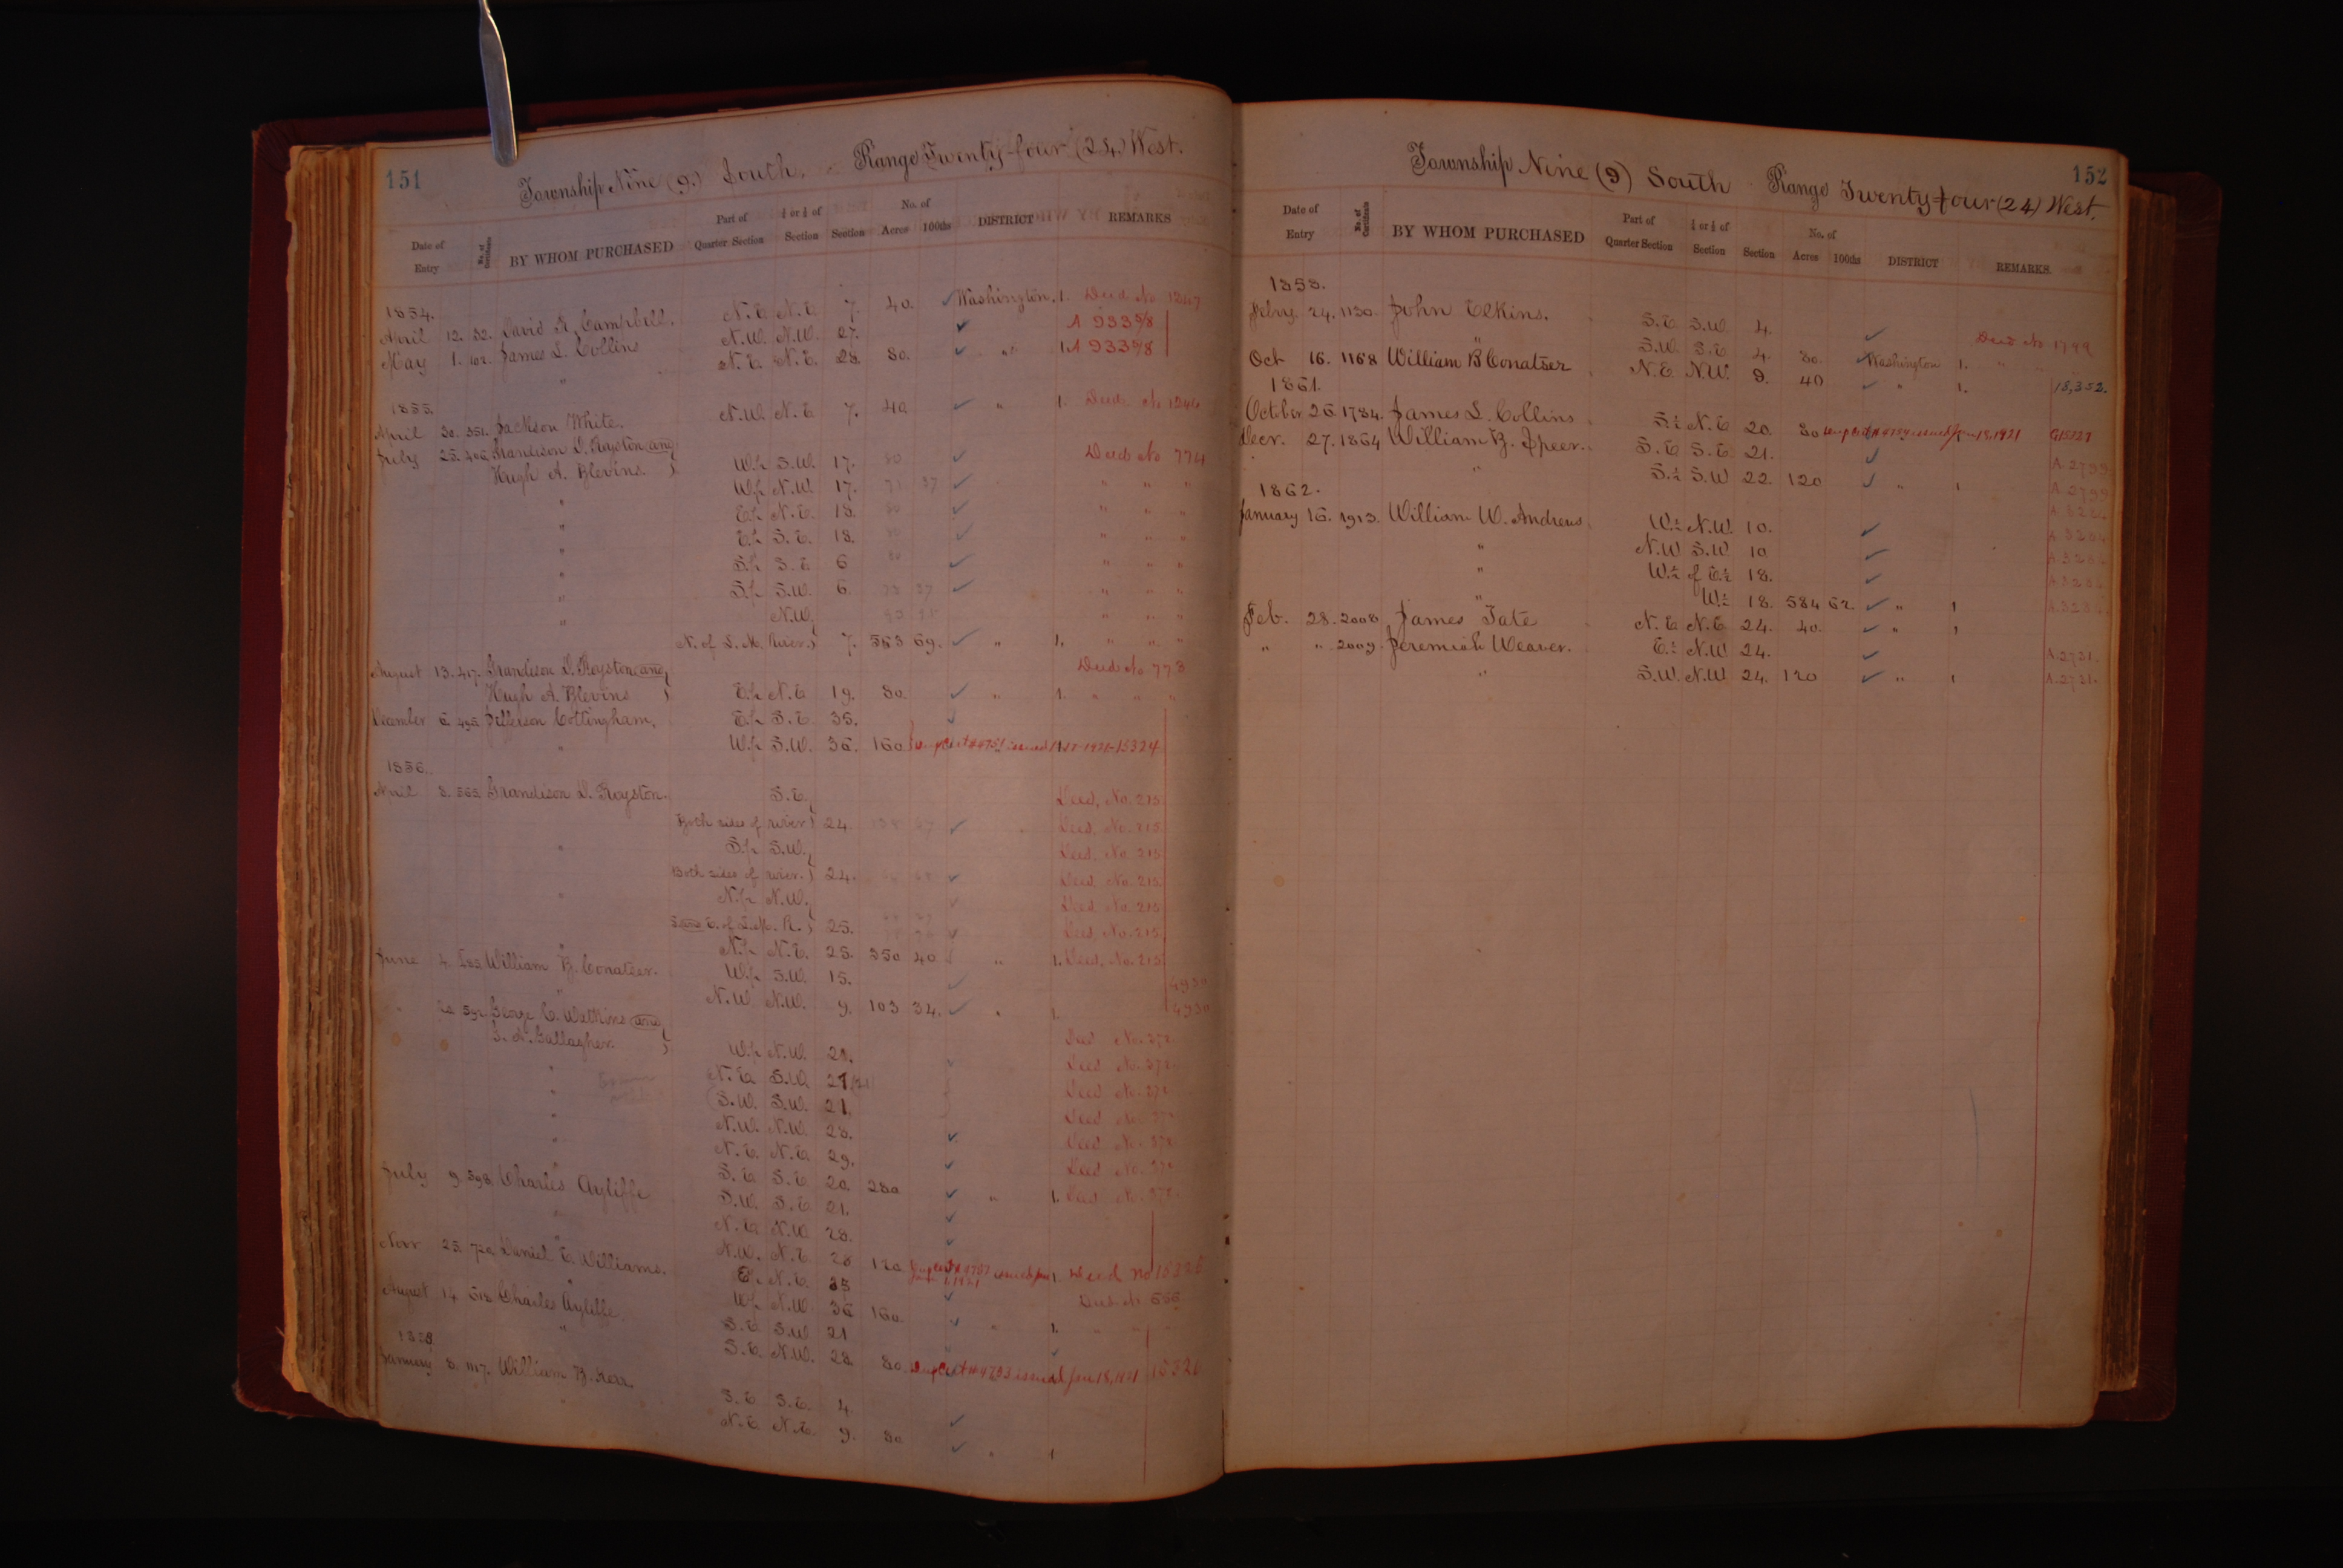 151
Township Nine (9.) South. Range Twenty-four (24) West.
Date of Entry No. of Certificate BY WHOM PURCHASED Part of Quarter Section ½ or ¼ of Section Section No. of Acres 100ths DISTRICT REMARKS
1854.
April 12. 32. David R. Campbell. N.E. N.E. 7. 40. Washington. 1. Deed No 1247
May 1. 102. James L. Collins N.W. N.W. 27. A 933 5/8
" N.E. N.E. 28. 80. " 1. A 933 5/8
1855.
April 30. 351. Jackson White. N.W. N.E. 7. 40 " 1. Deed No 1246
July 25. 406. Grandison D. Royston and
Hugh A. Blevins. W.½ S.W. 17. 80 Deed No 774
" W.½ N.W. 17. 37 " " "
" E.½ N.E. 18. 80 " " "
" E.½ S.E. 18. 80 " " "
" S.½ S.E. 6 80 " " "
" S.½ S.W. 6. 37 " " "
" N.W.
N. of L. M. River. 7. 563 69. " 1. " " "
August 13. 417. Grandison D. Royston and Deed No 773
Hugh A. Blevins E.½ N.E. 19. 80. " 1. " " "
December 6. 495. Jefferson Cottingham. E.½ S.E. 35.
" W.½ S.W. 36. 160 15324
1856.
April 8. 565. Grandison D. Royston. S.E. Deed, No. 215
Both sides of river 24. Deed, No. 215
" S.½ S.W. Deed, No. 215
Both sides of river. 24. Deed, No. 215
" N.½ N.W. Deed, No. 215
S. and E. of L. M. R. 25. Deed, No. 215
" N.½ N.E. 25. 350 40 " 1. Deed, No. 215
June 4. William B. Conatser. W.½ S.W. 15. 4930
" N.W. N.W. 9. 103 34. " 1. 4930
" George C. Watkins and Deed No. 372
G. A. Gallagher. W.½ N.W. 21. Deed No. 372
" N.E. S.W. 21 Deed No. 372
" S.W. S.W. 21. Deed No. 372
" N.W. N.W. 28. Deed No. 372
" N.E. N.E. 29. Deed No. 372
" S.E. S.E. 20. 280 " 1. Deed No. 372
July 9. 598. Charles Ayliffe S.W. S.E. 21.
" N.E. N.W. 28.
" N.W. N.E. 28 120 1. Deed no 15325
Novr 25. 720. Daniel E. Williams. E.½ N.E. 35
" W.½ N.W. 36 160. " 1.
August 14 Charles Ayliffe. S.E. S.W. 21
" S.E. N.W. 28. 80. issued Jan 18, 1921 15326
1858.
January 8. 1117. William B. Kerr. S.E. S.E. 4.
" N.E. N.E. 9. 80 " 1
152
Township Nine (9) South Range Twenty-four (24) West.
Date of Entry No. of Certificate BY WHOM PURCHASED Part of Quarter Section ½ or ¼ of Section Section No. of Acres 100ths DISTRICT REMARKS.
1858.
Febry. 24. 1130. John Elkins. S.E. S.W. 4. Deed No 1799
" S.W. S.E. 4. 80. Washington 1. " "
Oct 16. 1168 William B Conatser N.E. N.W. 9. 40 " 1. 18,352.
1861.
October 26 1784. James L. Collins S.½ N.E. 20. 80 issued Jan 18, 1921 G15327
Decr. 27. 1864 William B. Speer. S.E. S.E. 21. A. 2799
" S.½ S.W 22. 120 " 1 A. 2799
1862.
January 16. 1913. William W. Andrews. W.½ N.W. 10. A. 3204
" N.W S.W. 10 A. 3204
" W.½ of E.½ 18. A. 3204
" W.½ 18. 584 62 " 1 A. 3204
Feb. 28. 2008 James Tate N.E N.E 24. 40. " 1
" " 2009. Jeremiah Weaver. E.½ N.W 24. A. 2731.
" S.W. N.W 24. 120 " 1 A. 2731.